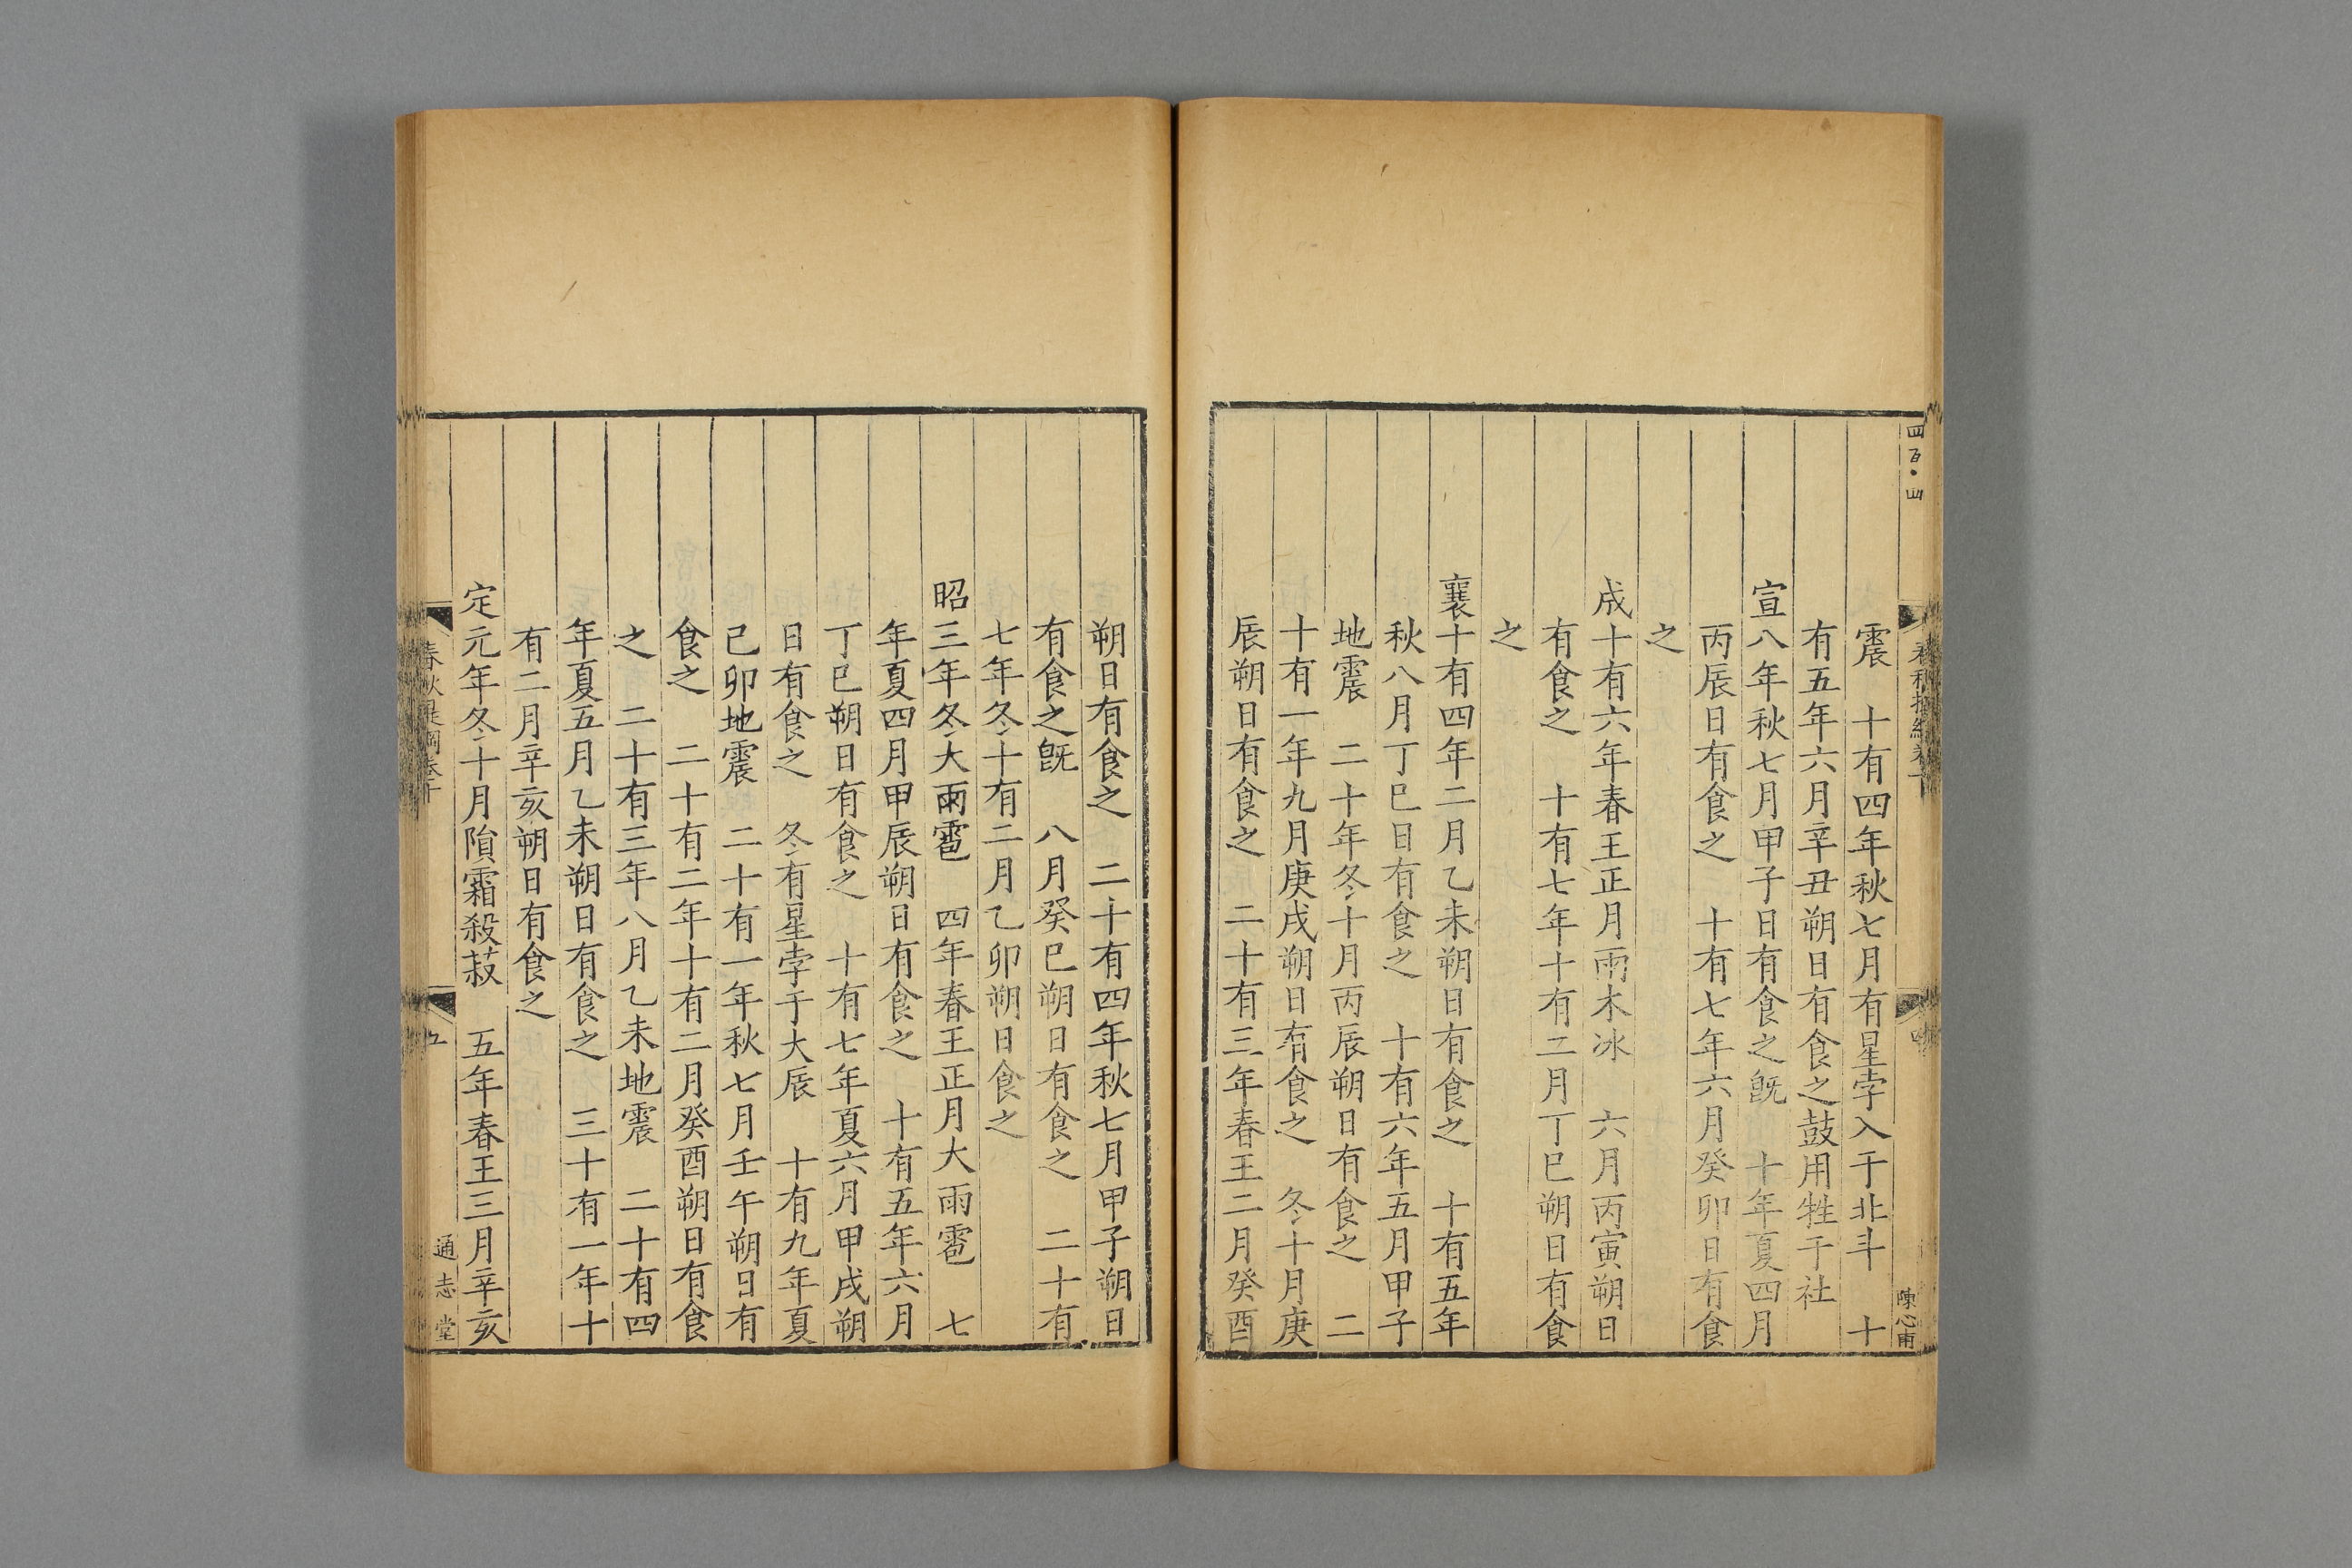 震　十有四年秋七月有星孛入于北斗　十
有五年六月辛丑朔日有食之鼓用牲于社
宣八年秋七月甲子日有食之旣　十年夏四月
丙辰日有食之　十有七年六月癸卯日有食
之
成十有六年春王正月雨木冰　六月丙寅朔日
有食之　十有七年十有二月丁巳朔日有食
之
襄十有四年二月乙未朔日有食之　十有五年
秋八月丁巳日有食之　十有六年五月甲子
地震　二十年冬十月丙辰朔日有食之　二
十有一年九月庚戌朔日有食之　冬十月庚
辰朔日有食之　二十有三年春王二月癸酉
陳心甫
朔日有食之　二十有四年秋七月甲子朔日
有食之旣　八月癸巳朔日有食之　二十有
七年冬十有二月乙卯朔日食之
昭三年冬大雨雹　四年春王正月大雨雹　七
年夏四月甲辰朔日有食之　十有五年六月
丁巳朔日有食之　十有七年夏六月甲戌朔
日有食之　冬有星孛于大辰　十有九年夏
己卯地震　二十有一年秋七月壬午朔日有
食之　二十有二年十有二月癸酉朔日有食
之　二十有三年八月乙未地震　二十有四
年夏五月乙未朔日有食之　三十有一年十
有二月辛亥朔日有食之
定元年冬十月隕霜殺菽　五年春王三月辛亥
春秋提綱卷十
五
通志堂